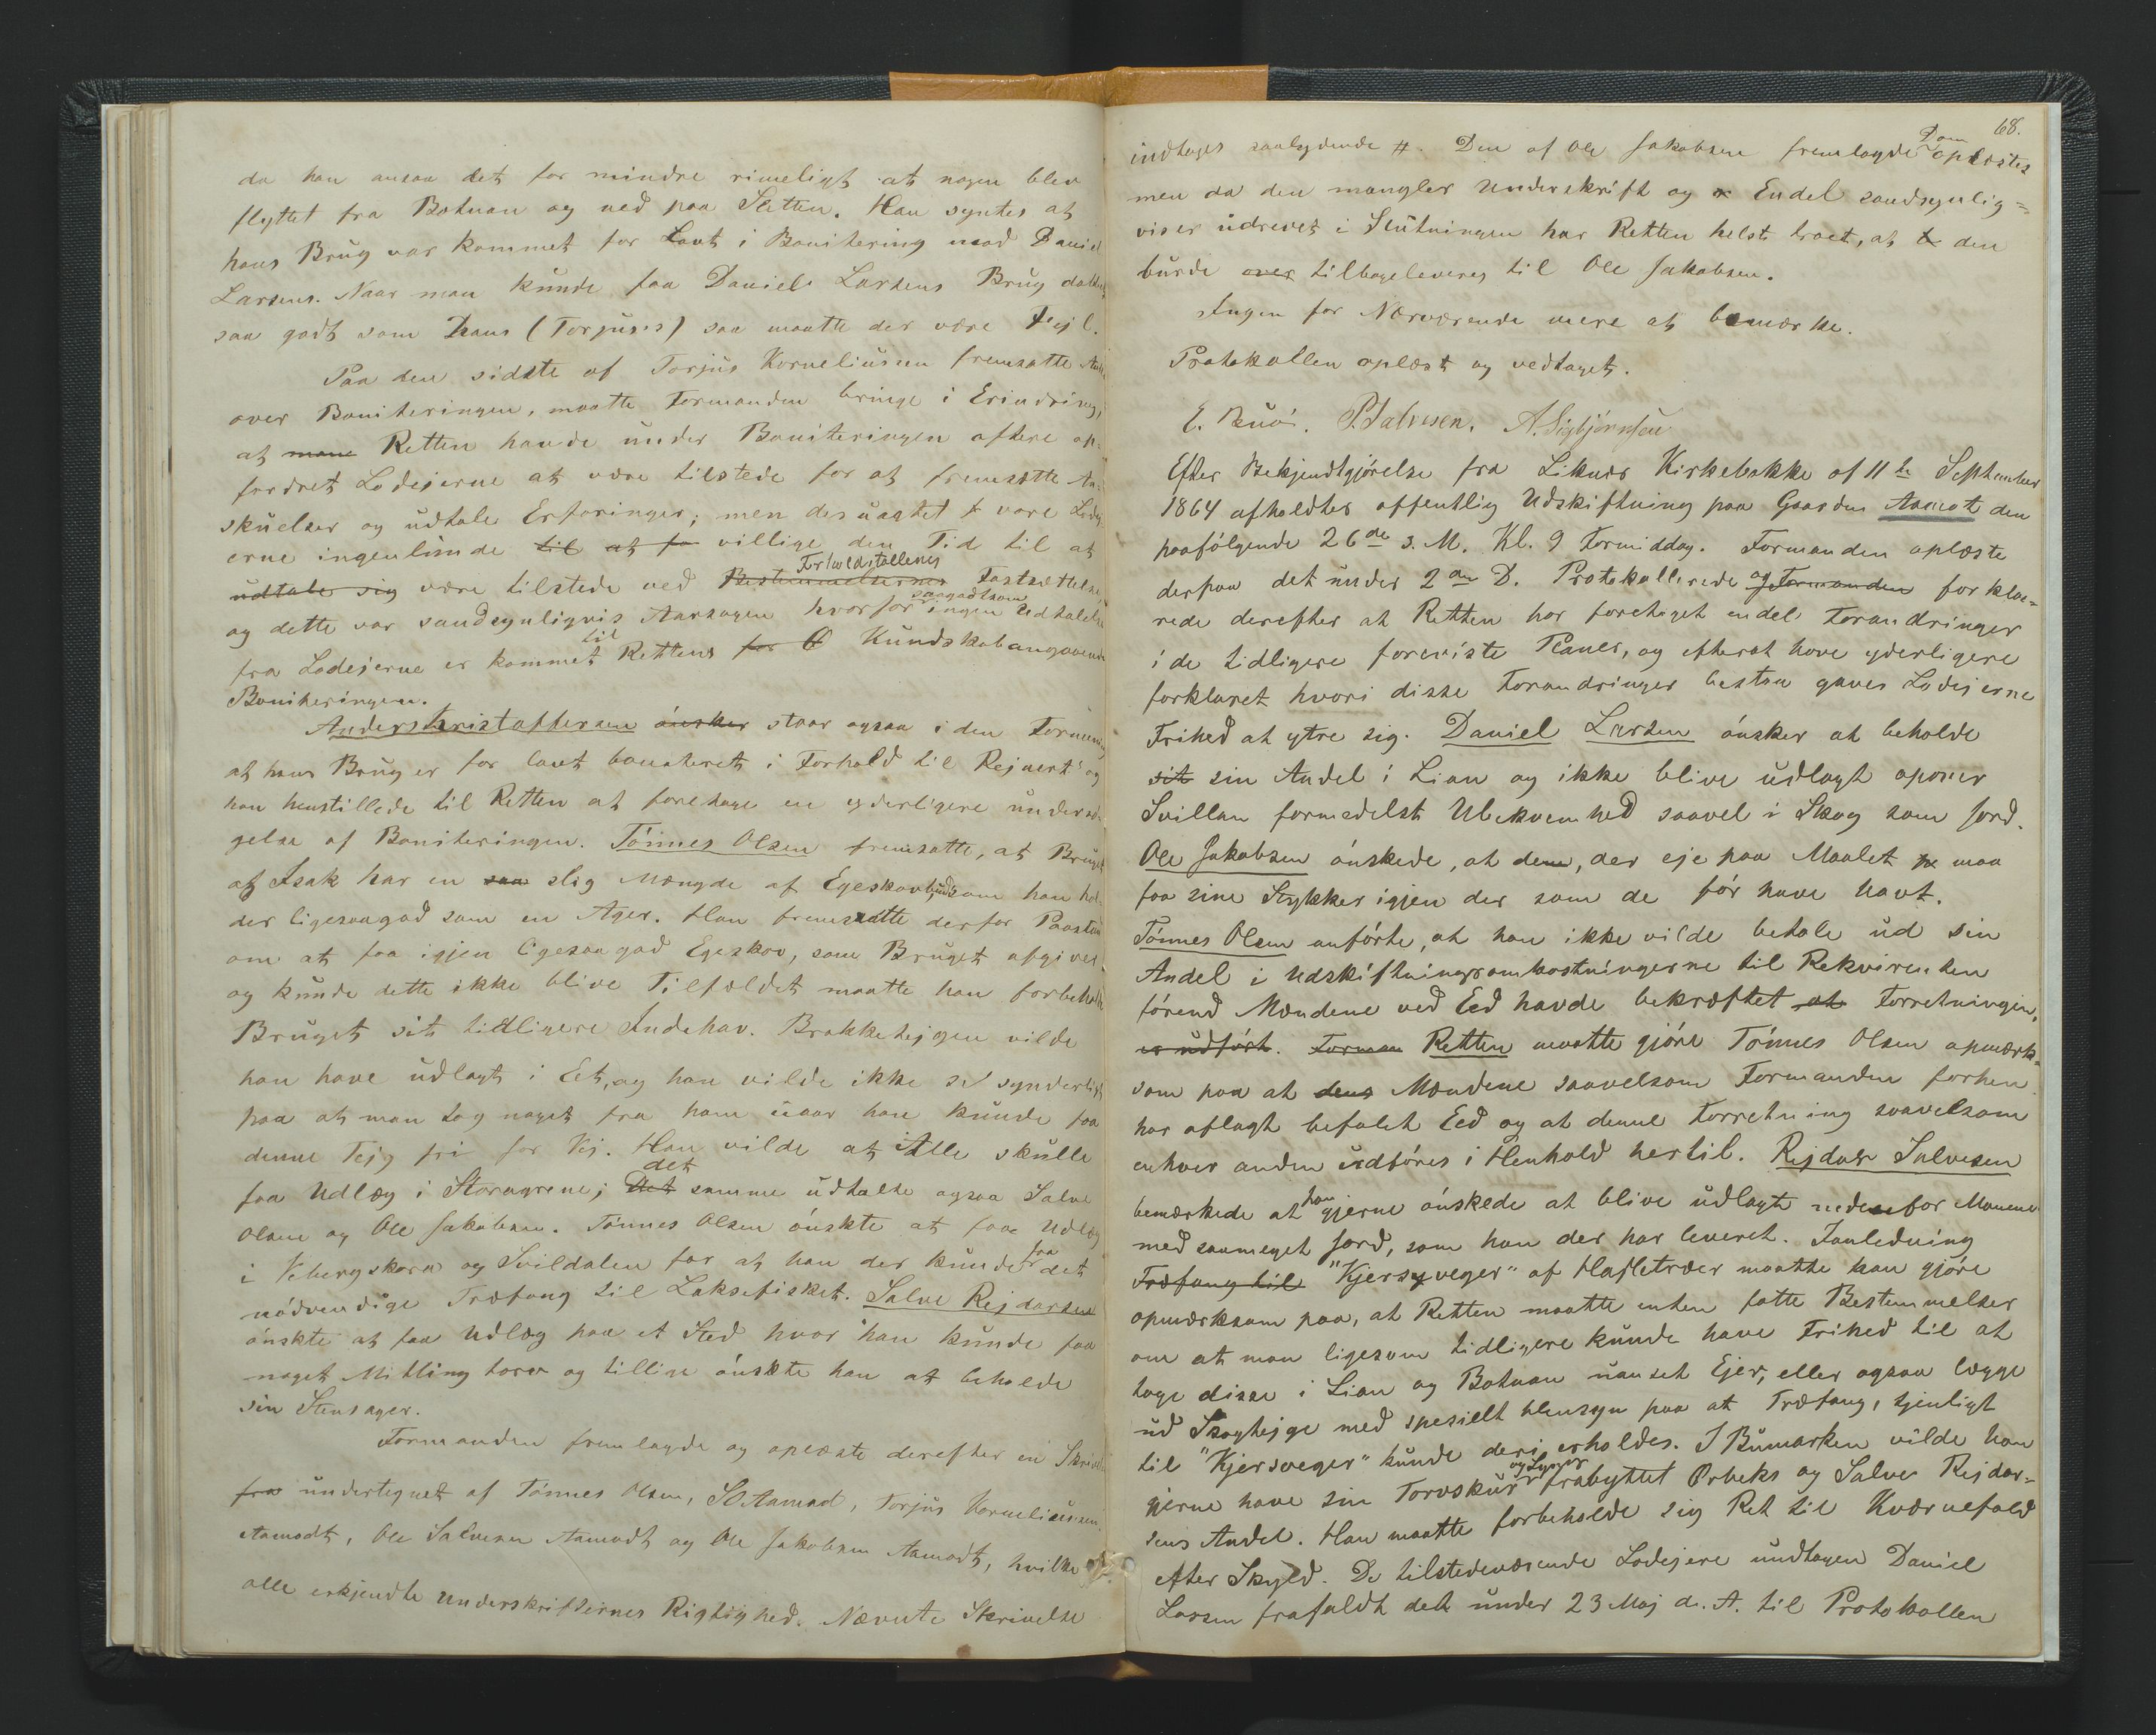 da han ansaa det for mindre rimeligt at nogen blev
flyttet fra Botnan og ned paa Sletten. Han syntes at
hans Brug var kommet for Lavt i Bonitering mod Daniel
Larsens. Naar man kunde faa Daniel Larsens Brug
saa godt som hans (Torjuses) saa maatte der være Fejl.
Paa den sidste af Torjus Korneliusen fremsatte Anke
over Boniteringen, maatte Formanden bringe i Erindring,
at mane Retten havde under Boniteringen oftere op-
fordret Lodejerne at være tilstede for at fremsætte An-
skuelser og udtale Erfaringer; men desuagtet vare Lodej
erne ingenlunde til at fo villige den Tid til at
udtale sig være tilstede ved Bestemmelsernes Forholdstallenes Fastsættelse,
og dette var sandsynligvis Aarsagen hvorfor saagodtsom ingen Udtalelse
fra Lodejerne er kommet til Rettens for O Kundskab angaaende
Boniteringen.
Anders Kristoffersen ønsker staar ogsaa i den Formening
at hans Brug er for lavt boniteret i Forhold til Rejnert's og
han henstillede til Retten at foretage en yderligere undersø-
gelse af Boniteringen. Tönnes Olsen fremsatte, at Bruget
af Isak har en saa slig Mængde af Egeskov som han hol-
der ligesaagod som en Ager. Han fremsatte derfor Paastand
om at faa igjen ligesaagod Egeskov, som Bruget afgiver
og kunde dette ikke blive Tilfældet maatte han forbeholde
Bruget sit tidligere Indehav. Brakketejgen vilde
han have udlagt i Et, og han vilde ikke se synderligt
paa at man tog noget fra ham naar han kunde faa
denne Tejg fri for Vej. Han vilde at Alle skulle
faa Udlæg i Storagrene; Det det samme udtalte ogsaa Salve
Olsen og Ole Jakobsen. Tönnes Olsen ønskte at faa Udlæg
i Vebergskara og Svildalen for at han der kunde fra det
nødvendige Træfang til Laksefisket. Salve Rejdarsen
ønskte at faa Udlæg paa et Sted hvor han kunde faa
noget Mitling torv og tillige ønskte han at beholde
sin Stensager.
Formanden fremlagde og oplæste derefter en Skrivelse
fra undertegnet af Tönnes Olsen, SO Aamodt, Torjus Korneliusen
Aamodt, Ole Salvesen Aamodt og Ole Jakobsen Aamodt, hvilke
alle erkjendte Underskrifternes Rigtighed. Nævnte Skrivelse
68.
indtages saalydende #. Den af Ole Jakobsen fremlagde Dom oplæstes
men da den mangler Underskrift og Endel sandsynlig=
viser udrevet i Slutningen har Retten helst troet, at den
burde over tilbageleveres til Ole Jakobsen.
Ingen for Nærværende mere at bemærke.
Protokollen oplæst og vedtaget.
P. Salvesen. A. Sigbjørnsen
Efter Bekjendtgjörelse fra Liknes Kirkebakke af 11te September
1864 afholdtes offentlig Udskiftning paa Gaarden Aamot den
paafölgende 26de s. M. Kl. 9 Formiddag. Formanden oplæste
derpaa det under 2den D. Protokollerede og Formanden forkla=
rede derefter at Retten har foretaget endel Forandringer
i de tidligere foreviste Planer, og efterat have yderligere
forklaret hvori disse Forandringer bestaa gaves Lodejerne
Frihed at ytre sig. Daniel Larsen ønsker at beholde
sit sin Andel i Lian og ikke blive udlagt aponer
Svillan formedelst Ubekvemhed saavel i Skog som Jord.
Ole Jakobsen ønskede, at dem, der eje paa Maalet maa
faa sine Stykker igjen der som de før have havt.
Tönnes Olsen anførte, at han ikke vilde betale ud sin
Andel i Udskiftningsomkostningerne til Rekvirenten
førend Mændene ved Eed havde bekræftet at Forretningen.
er udført. Forman Retten maatte gjöre Tönnes Olsen opmærk=
som paa at dens Mændene saavelsom Formanden forhen
har aflagt befalet Eed og at denne Forretning saavelsom
enhver anden udføres i Henhold hertil. Rejdar Salvesen
bemærkede at han gjerne ønskede at blive udlagte nedenfor Monene
med saameget Jord, som han der har leveret. I Anledning
Træfang til "Kjersveger" af Hasletræer maatte han gjöre
opmærksom paa, at Retten maatte enten fatte Bestemmelser
om at man ligesom tidligere kunde have Frihed til at
tage disse i Lian og Botnan uanset Ejer, eller ogsaa lægge
ud Skogtejge med spesielt Hensyn paa at Træfang, tjenligt
til "Kjersveger" kunde deri erholdes. I Bumarken vilde han
gjerne have sin Torvskur og Lynger frabyttet Orbeks og Salve Rejdar=
sens Andel. Han maatte forbeholde sig Ret til Kværnefald
efter Skyld. De tilstedeværende Lodejere undtagen Daniel
Larsen frafaldt det under 23 Maj d. A. til Protokollen